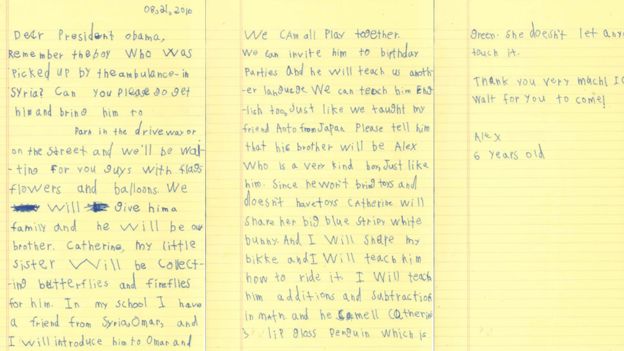 08,21, 2010
Dear President obama,
Remember the boy who was
Picked up by the ambulance in
Syria? Can you please go get
him and bring him to
Park in the driveway or
on the street and we'll be wai-
ting for you guys with flags
flowers and balloons. We
will give him a
family and he will be our
brother. Catherine, my little
sister will be collect-
ing butterflies and fireflies
for him. In my school I have
a friend from Syria, Omar, and
I will introduce him to Omar and
We can all Play together.
We can invite him to birthday
Parties and he will teach us anoth-
er language. We can teach him Eng-
lish too, Just like we taught my
friend Aoto from Japan Please tell him
that his brother will be Alex
who is a very kind boy, Just like
him. Since he won't bring toys and
doesn't have toys Catherine will
share her big blue stripy white
bunny. And I will share my
bikke and I will teach him
how to ride it. I will teach
him additions and subtraction
in math. and he smell Catherine
lip gloss Penguin which is
green. she doesn't let any
touch it.
Thank you very much! I c
wait for you to come!
Alex
6 years old